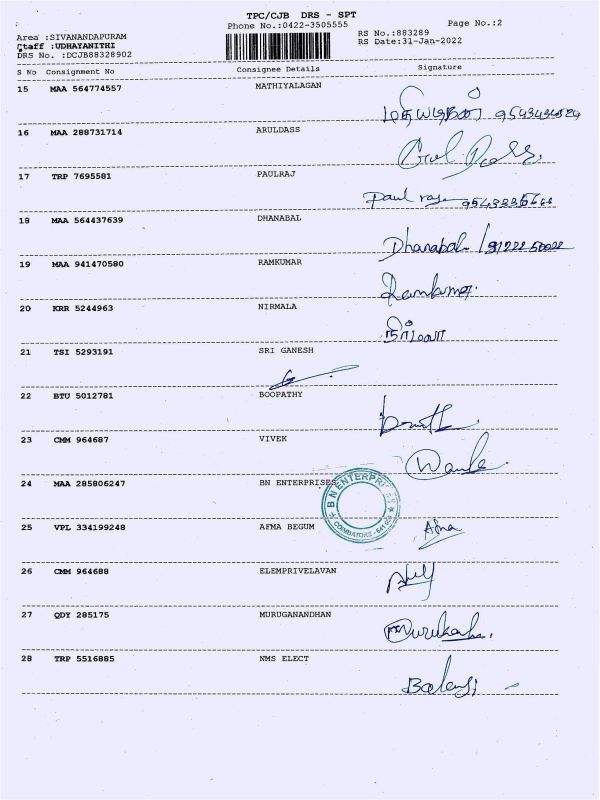 TPC/CJB DRS - SPT
Phone No.:0422-3505555
Page No.:2
Area :SIVANANDAPURAM
RS No.:883289
Staff :UDHAYANITHI
RS Date:31-Jan-2022
DRS No. :DCJB88328902
S No Consignment No Consignee Details Signature
15 MAA 564774557 MATHIYALAGAN
16 MAA 288731714 ARULDASS
17 TRP 7695581 PAULRAJ
Paul raj
18 MAA 564437639 DHANABAL
Dhanabal
19 MAA 941470580 RAMKUMAR
Ramkumar
20 KRR 5244963 NIRMALA
நிர்மலா
21 TSI 5293191 SRI GANESH
22 BTU 5012781 BOOPATHY
23 CMM 964687 VIVEK
24 MAA 285806247 BN ENTERPRISES
B N ENTERPRISES
COIMBATORE
25 VPL 334199248 AFMA BEGUM
Afna
26 CMM 964688 ELEMPRIVELAVAN
27 QDY 285175 MURUGANANDHAN
28 TRP 5516885 NMS ELECT
Balaji